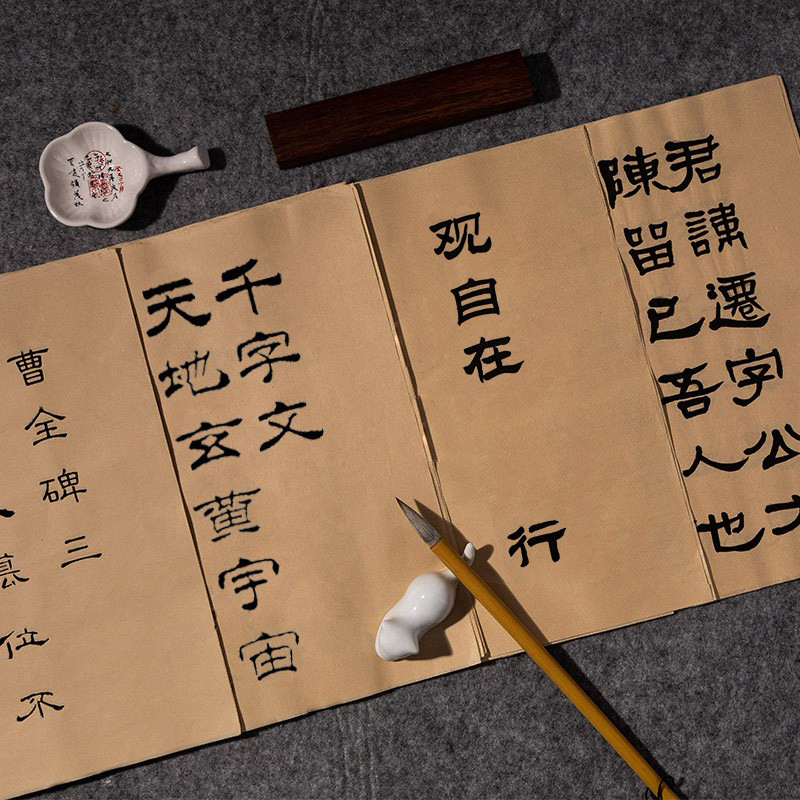 君諱遷字公
陳留已吾人也
观自在
行
千字文
天地玄黄宇宙
曹全碑三
位不